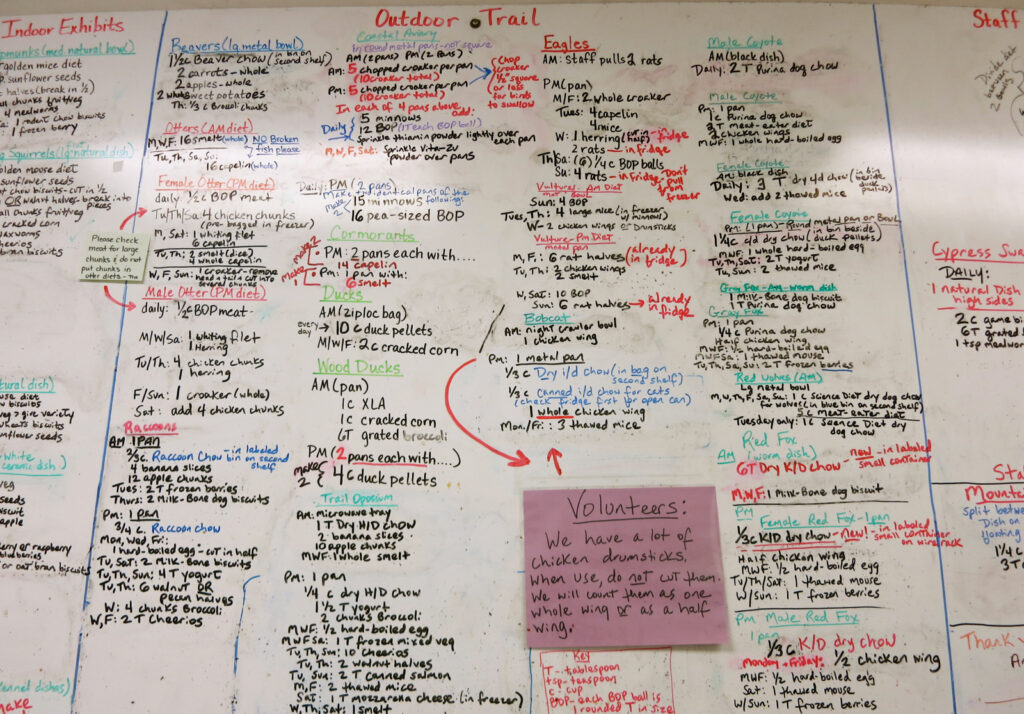 Indoor Exhibits
munks (med. natural bowl)
golden mice diet
sunflower seeds
halves (break in 1/2)
chunks fruit/veg
4 mealworms
1 rodent chow biscuits
: 1 frozen berry
Squirrels (lg natural dish)
olden mouse diet
sunflower seeds
t chow biscuits - cut in 1/2
OR walnut halves - break into pieces
all chunks fruit/veg
cracked corn
waxworms
heerios
bran biscuits
tural dish)
use diet
w biscuits
veg > give variety
wheats biscuits
nflower seeds
white
ceramic dish)
seeds
scuit
apple
erry or raspberry
blueberries
or oat bran biscuits
kennel dishes)
make
Outdoor Trail
Beavers (lg. metal bowl)
1 1/2c Beaver chow (in bin on second shelf)
2 carrots - whole
2 apples - whole
2 whole sweet potatoes
Th: 1/3 c Broccoli chunks
Otters (AM diet)
M,W,F: 16 smelt (whole) NO Broken fish please
Tu, Th, Sa, Su:
16 capelin (whole)
Female Otter (PM diet)
daily: 1/2c BOP meat
Tu/Th/Sa: 4 chicken chunks
(pre-bagged in freezer)
M, Sat: 1 whiting filet
6 capelin
Tu, Th: 2 smelt (dice)
4 whole capelin
W, F, Sun: 1 croaker - remove head & tail & cut into several chunks
Please check
meat for large
chunks & do not
put chunks in
otter diets
Male Otter (PM diet)
daily: 1/2c BOP meat
M/W/Sa: 1 whiting filet
1 Herring
Tu/Th: 4 chicken chunks
1 herring
F/Sun: 1 croaker (whole)
Sat: add 4 chicken chunks
Raccoons
AM 1 PAN
2/3c. Raccoon Chow - in labeled bin on second shelf
4 banana slices
12 apple chunks
Tues: 2 T frozen berries
Thurs: 2 Milk-Bone dog biscuits
Pm: 1 pan
3/4 c. Raccoon chow
Mon, Wed, Fri:
1 hard-boiled egg - cut in half
Tu, Sat: 2 Milk-Bone biscuits
Tu, Th, Sun: 4 T yogurt
Tu, Th: 6 walnut OR
pecan halves
W: 4 chunks Broccoli
W, F: 2 T Cheerios
Coastal Aviary
big round metal pans - not square
AM (2 pans) PM (2 Pans)
AM: 5 chopped croaker per pan
(10 croaker total)
PM: 5 chopped croaker per pan
(10 croaker total)
(Chop croaker 1/2" square or less for birds to swallow
In each of 4 pans above add:
Daily 5 minnows
12 BOP (1 T each BOP ball)
Sprinkle thiamin powder lightly over each
M, W, F, Sat: Sprinkle Vita-Zu
powder over pans
Daily: PM (2 pans)
Make 2 identical pans of the followings
15 minnows
16 pea-sized BOP
Cormorants
make 2 PM: 2 pans each with....
4 capelin
make 1 Pm: 1 pan with:
6 smelt
Ducks
AM (ziploc bag)
every day → 10 c duck pellets
M/W/F: 2c cracked corn
Wood Ducks
AM (pan)
1c XLA
1c cracked corn
6T grated broccoli
PM (2 pans each with....)
make 2 { 4c duck pellets
Trail Opossum
AM: microwave tray
1 T Dry H/D chow
2 banana slices
10 apple chunks
MWF: 1 whole smelt
Pm: 1 pan
1/4 c dry H/D chow
1 1/2 T yogurt
2 chunks Broccoli
MWF: 1/2 hard-boiled egg
MWFSa: 1 T frozen mixed veg
Tu, Th, Sun: 10 Cheerios
Tu, Th: 2 walnut halves
Tu, Sun: 2 T canned salmon
M, F: 2 thawed mice
Sat: 1 T mozzarella cheese (in freezer)
W, Th, Sat: 1 smelt
Eagles
AM: staff pulls 2 rats
PM (pan)
M/F: 2 whole croaker
Tues: 4 capelin
4 mice
W: 1 herring (half) - in fridge
2 rats - in fridge
Th/Sa: (6) 1/4c BOP balls
Su: 4 rats - in fridge Don't pull from freezer
Vultures - AM Diet
Sun: 4 BOP
Tues, Th: 4 large mice (in freezer w/ minnows)
W - 2 chicken wings or Drumsticks
Vulture - PM Diet
metal pan
M, F: 6 rat halves (already in fridge)
Tu, Th: 2 chicken wings
2 smelt
W, Sat: 10 BOP
Sun: 6 rat halves → already in fridge
Bobcat
AM: night crawler bowl
1 chicken wing
Pm: 1 metal pan
1/3 c Dry i/d chow (in bag on second shelf)
1/3 c canned i/d chow for cats
(check fridge first for open can)
1 whole chicken wing
Mon./Fri.: 3 thawed mice
Volunteers:
We have a lot of
chicken drumsticks.
When use, do not cut them.
We will count them as one
whole wing or as a half
wing.
Key
T - tablespoon
tsp - teaspoon
c: cup
BOP - each BOP ball is
1 rounded T in size
Male Coyote
AM (black dish)
Daily: 2 T Purina dog chow
Male Coyote
Pm: 1 pan
1c Purina dog chow
3 T meat-eater diet
2 chicken wings
MWF: 1 whole hard-boiled egg
Female Coyote
Am: black dish
Daily: 3 T dry i/d chow (in bin beside duck pellets)
Wed: add 2 thawed mice
Female Coyote
Pm: (1 pan) - Round metal pan or Bowl
1 1/4c i/d dry chow (in bin beside duck pellets)
MWF: 1 whole hard-boiled egg
Tu, Th, Sat: 2 T yogurt
Tu, Sun: 2 thawed mice
Gray Fox - Am - worm dish
1 Milk-Bone dog biscuit
1 T Purina dog chow
Gray Fox
Pm: 1 pan
1/4c Purina dog chow
Half chicken wing
MWF: 1/2 hard-boiled egg
MWFSa: 1 thawed mouse
Tu, Th, Sa, Su: 2 T frozen berries
Red Wolves (AM)
Lg metal bowl
M, W, Th, F, Sa, Su: 1 c Science Diet dry chow
for wolves (in blue bin on second shelf)
5c meat-eater diet
Tuesday only: 1c Science Diet dry
dog chow
Red Fox
AM (worm dish)
6T Dry K/D chow - new - in labeled small container
M, W, F: 1 Milk-Bone dog biscuit
PM
Female Red Fox - 1 pan
1/3c K/D dry chow - new! - in labeled small container on wire rack
Half chicken wing
MWF: 1/2 hard-boiled egg
Tu/Th/Sat: 1 thawed mouse
W/Sun: 1 T frozen berries
Pm Male Red Fox
1 pan
1/3 c K/D dry chow
Monday & Friday: 1/2 chicken wing
MWF: 1/2 hard-boiled egg
Sat: 1 thawed mouse
W/Sun: 1 T frozen berries
Staff
Divide between 2 bowls
Cypress Swam
DAILY:
1 natural Dish
high sides
2c game bi
6T grated
1 tsp mealwor
Sta
Mounta
split betwe
Dish on
floating
1 1/4
3 T
Thank